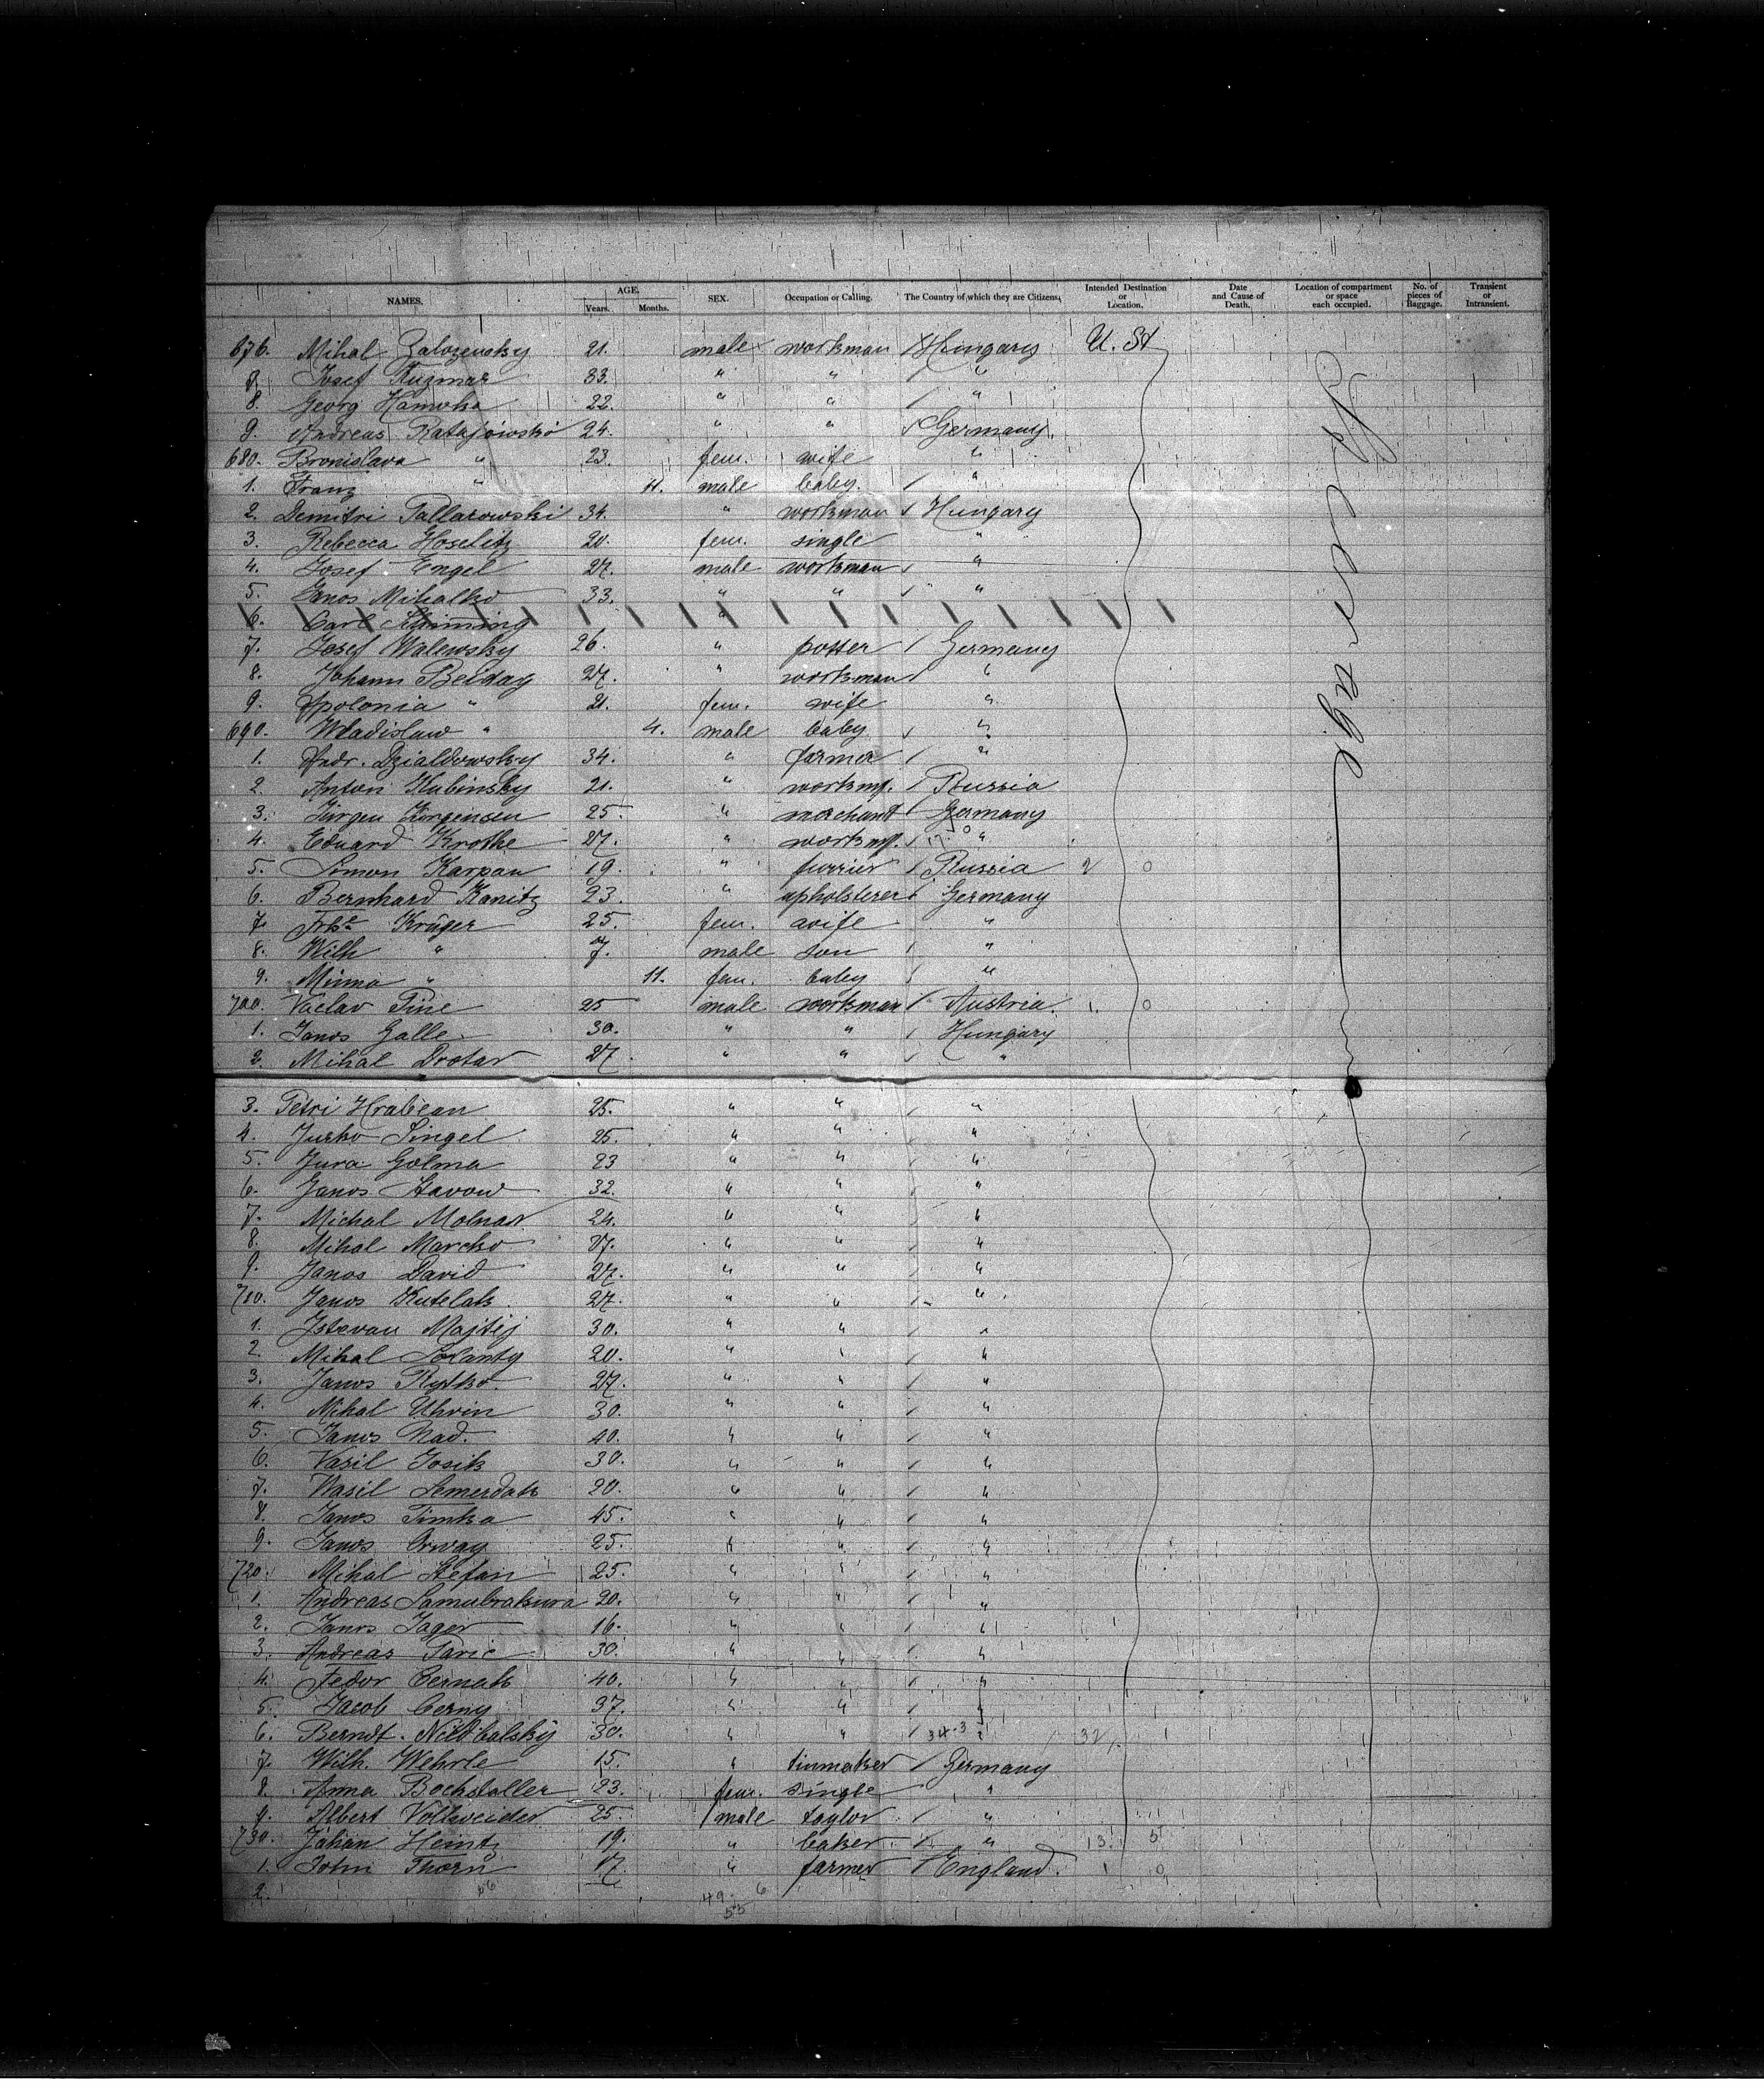 NAMES. AGE. Years. Months. SEX. Occupation or Calling. The Country of which they are Citizens. Intended Destination or Location. Date and Cause of Death. Location of compartment or space each occupied. No. of pieces of Baggage. Transient or Intransient.
676. Mihal Zalozensky 21. male workman Hungary U. St
7. Josef Kuzmar 33. " " "
8. Georg Hamoka 22. " " "
9. Andreas Ratajowski 24. " " Germany
680. Bronislava " 23. fem. wife "
1. Franz " 11. male baby. "
2. Demitri Pallarowski 34. " workman Hungary
3. Rebecca Hoselitz 20. fem. single "
4. Josef Engel 27. male workman "
5. Janos Mihalko 33. " " "
6. Carl "
7. Josef Walewsky 26. " potter Germany
8. Johann Belday 27. " workman "
9. Apolonia " 21. fem. wife "
690. Wladislaw " 4. male baby "
1. Andr. Dzialdowsky 34. " farmer "
2. Anton Kubinsky 21. " workm. Russia
3. Jürgen Jürgensen 25. " merchant Germany
4. Eduard Krothe 27. " workm. "
5. Simon Karpan 19. " furrier Russia 2 0
6. Bernhard Kanitz 23. " upholsterer Germany
7. Krüger 25. fem. wife "
8. Wilh " 7. male son "
9. Minna " 11. fem. baby "
700. Vaclav Fine 25 male workman Austria 1. 0
1. Janos Galle 30. " " Hungary
2. Mihal Drotar 27. " " "
3. Petri Hrabean 25. " " "
4. Jurko Singel 25. " " "
5. Jura Golma 23 " " "
6. Janos Stavow 32. " " "
7. Michal Molnar 24. " " "
8. Mihal Marcko 27. " " "
9. Janos David 27. " " "
710. Janos Kutelak 27. " " "
1. Istevan Majtij 30. " " "
2. Mihal Solanty 20. " " "
3. Janos Rytko 27. " " "
4. Mihal Uhrin 30. " " "
5. Janos Nad. 40. " " "
6. Vasil Josik 30. " " "
7. Wasil Semerdak 20. " " "
8. Janos Timka 45. " " "
9. Janos Orway 25. " " "
720. Mihal Stefan 25. " " "
1. Andreas Samubraksura 20. " " "
2. Janos Jager 16. " " "
3. Andreas Taric 30. " " "
4. Fedor Cernak 40. " " "
5. Jacob Cerny 37. " " "
6. Berndt. 30. " " 34-3 " 32
7. Wilh. Wehrle 15. " tinmaker Germany
8. Anna Bochstaller 23. fem. single "
9. Albert Vollweider 25. male taylor "
730. Johan Heintz 19. " baker " 13. 5
1. John Thorn 17. " farmer England. 1 0
2. 56 49 6
55